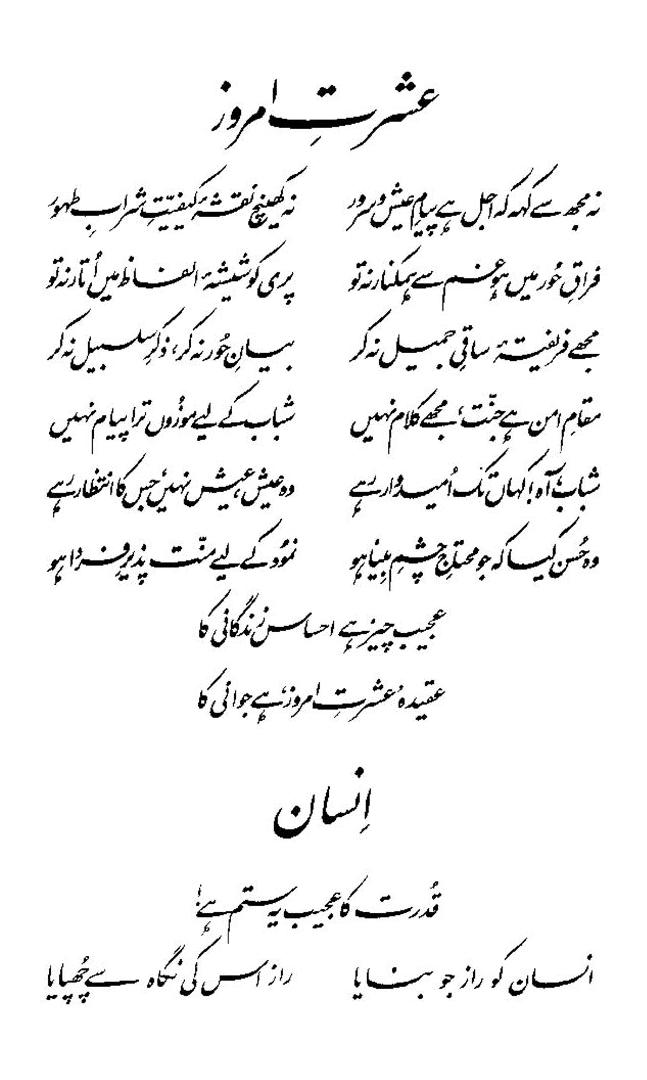 عشرتِ امروز
نہ مجھ سے کہہ کہ اجل ہے پیامِ عیش و سرور نہ کھینچ نقشۂ کیفیّتِ شرابِ طہور
فراقِ حُور میں ہو غم سے ہمکنار نہ تو پری کو شیشۂ الفاظ میں اُتار نہ تو
مجھے فریفتۂ ساقیِ جمیل نہ کر بیانِ حُور نہ کر، ذکرِ سلسبیل نہ کر
مقامِ امن ہے جنّت، مجھے کلام نہیں شباب کے لیے موزُوں ترا پیام نہیں
شباب، آہ! کہاں تک اُمیدوار رہے وہ عیش، عیش نہیں، جس کا انتظار رہے
وہ حُسن کیا کہ جو محتاجِ چشمِ بِینا ہو نمُود کے لیے منّت پذیرِ فردا ہو
عجیب چیز ہے احساس زندگانی کا
عقیدہ ’عشرتِ امروز‘ ہے جوانی کا
اِنسان
قُدرت کا عجیب یہ ستم ہے!
انسان کو راز جو بنایا راز اس کی نگاہ سے چھُپایا